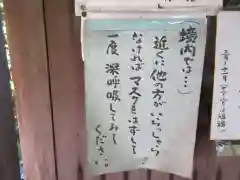 (境内では…)
近くに他の方がいらっしゃら
なければマスクをはずして
一度 深呼吸してみて
ください。